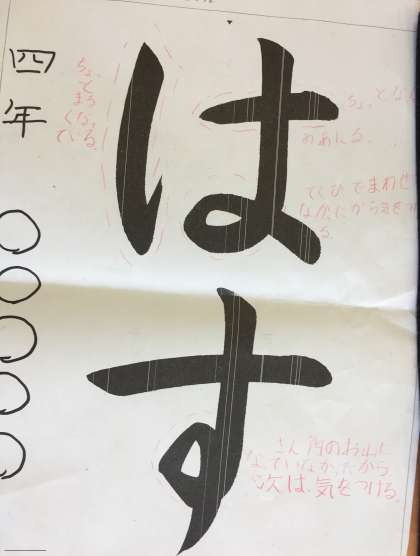 はす
四年
〇〇〇〇〇
ちょっと
まるく
なっ
ている。
ちょっとなな
のあにる。
てくびでまわせ
なかったから気をつけ
る。
さん角のお山に
なっていなかったから
次は気をつける。